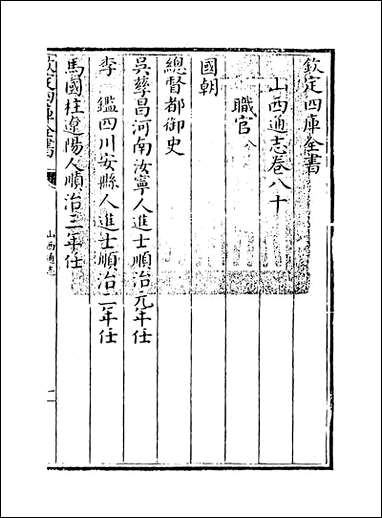 欽定四庫全書
山西通志卷八十
職官
國朝
總督都御史
吳孳昌河南汝寧人進士順治元年任
李鑑四川安縣人進士順治二年任
馬國柱遼陽人順治三年任
欽定四庫全書
山西通志